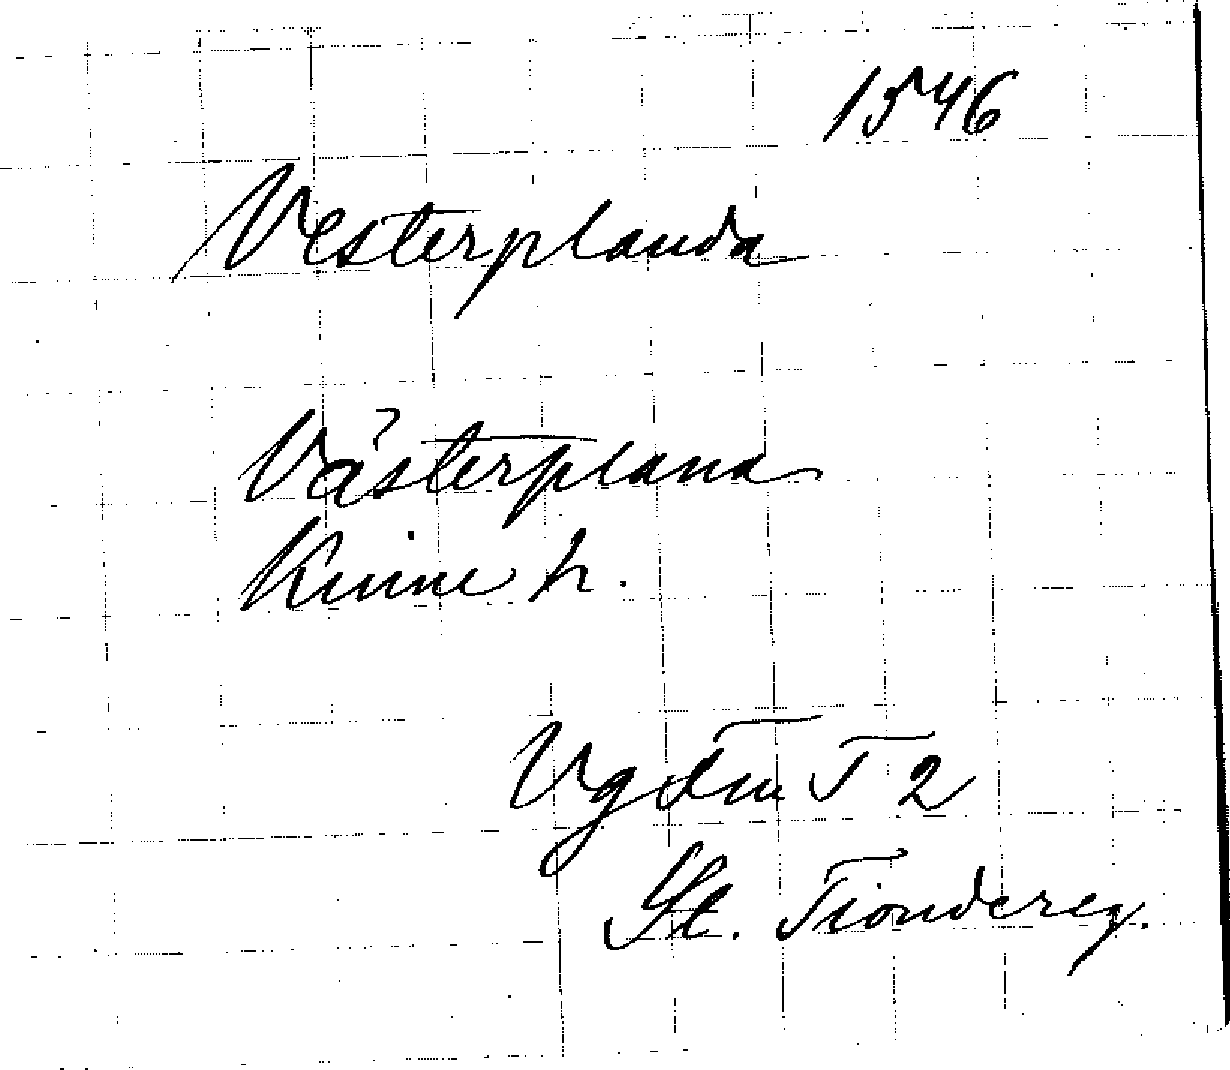 1546
Vesterplanda
Västerplana
Kinne h.
Vg Tiu T 2
St. Tiondereg.